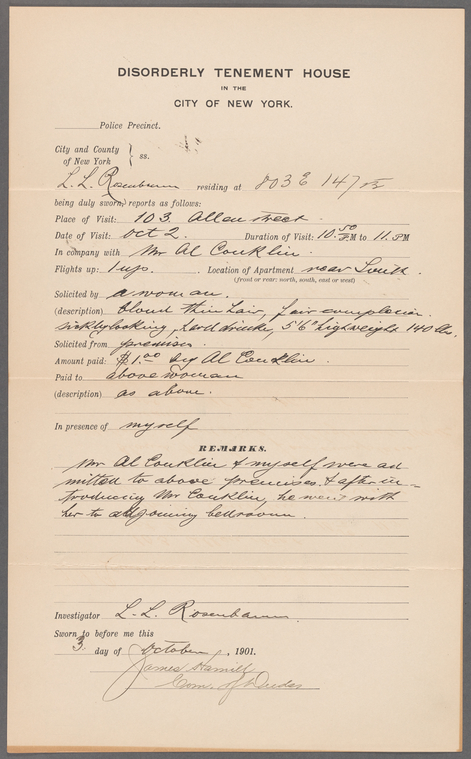 DISORDERLY TENEMENT HOUSE
IN THE
CITY OF NEW YORK.
Police Precinct.
City and County
of New York } ss.
L. L. Rosenbaum residing at 803 E 147 St
being duly sworn, reports as follows:
Place of Visit: 103 Allen street.
Date of Visit: Oct 2. Duration of Visit: 10.50 P.M to 11. P.M
In company with Mr Al Conklin.
Flights up: 1 up. Location of Apartment rear South.
(front or rear; north, south, east or west)
Solicited by a woman.
(description) blond thin hair, fair complexion.
sickly looking, hard drinker, 5'6" high weight 140 lbs.
Solicited from premises.
Amount paid: $1.00 by Al Conklin.
Paid to above woman
(description) as above.
In presence of myself
REMARKS.
Mr Al Conklin & myself were ad
mitted to above premises & after in-
troducing Mr Conklin, he went with
her to adjoining bedroom.
Investigator L. L. Rosenbaum.
Sworn to before me this
3 day of October, 1901.
James Hamill
Com. of Deeds